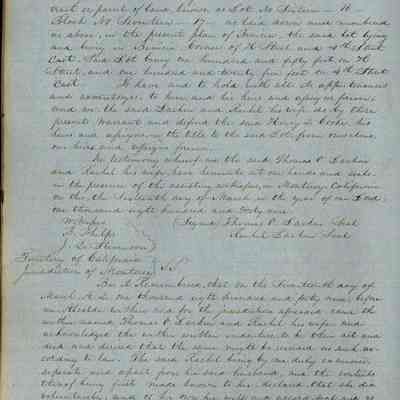 or parcel of land, known as Lot No Sixteen - 16 -
Block No Seventeen - 17 - as laid down and numbered
as above, in the present plan of Benicia, the said lot lying
and being in Benicia Corner of H Street and 4th Street
East. Said Lot being one hundred and fifty feet on H
Street, and one hundred and twenty five feet on 4th Street
East. To have and to hold with all the appurtenances
and to him and his heirs and assigns forever,
and we the said Larkin and Rachel his wife do by these
presents warrant and defend the said Henry Cooke his
heirs and assigns, in the title to the said Lot, from ourselves,
our heirs and assigns forever.
In testimony whereof we the said Thomas O Larkin
and Rachel his wife, have hereunto set our hands and seals
in the presence of the assisting witnesses, in Monterey California
on this the day of March in the year of our Lord
one thousand eight hundred and forty nine.
Signed Thomas O Larkin Seal
Rachel Larkin Seal
Territory of California
Jurisdiction of Monterey SS
Be it Remembered, that on the day of
March A. D. one thousand eight hundred and forty nine, before
me Alcalde in and for the jurisdiction aforesaid came the
within named Thomas O Larkin and Rachel his wife and
acknowledged the within written indenture to be their act and
deed and desired that the same might be recorded as such ac-
cording to law. The said Rachel being by me duly examined
separate and apart from her said husband, and the contents
thereof being first made known to her, declared that she did
voluntarily, and of her own free will and accord seal and